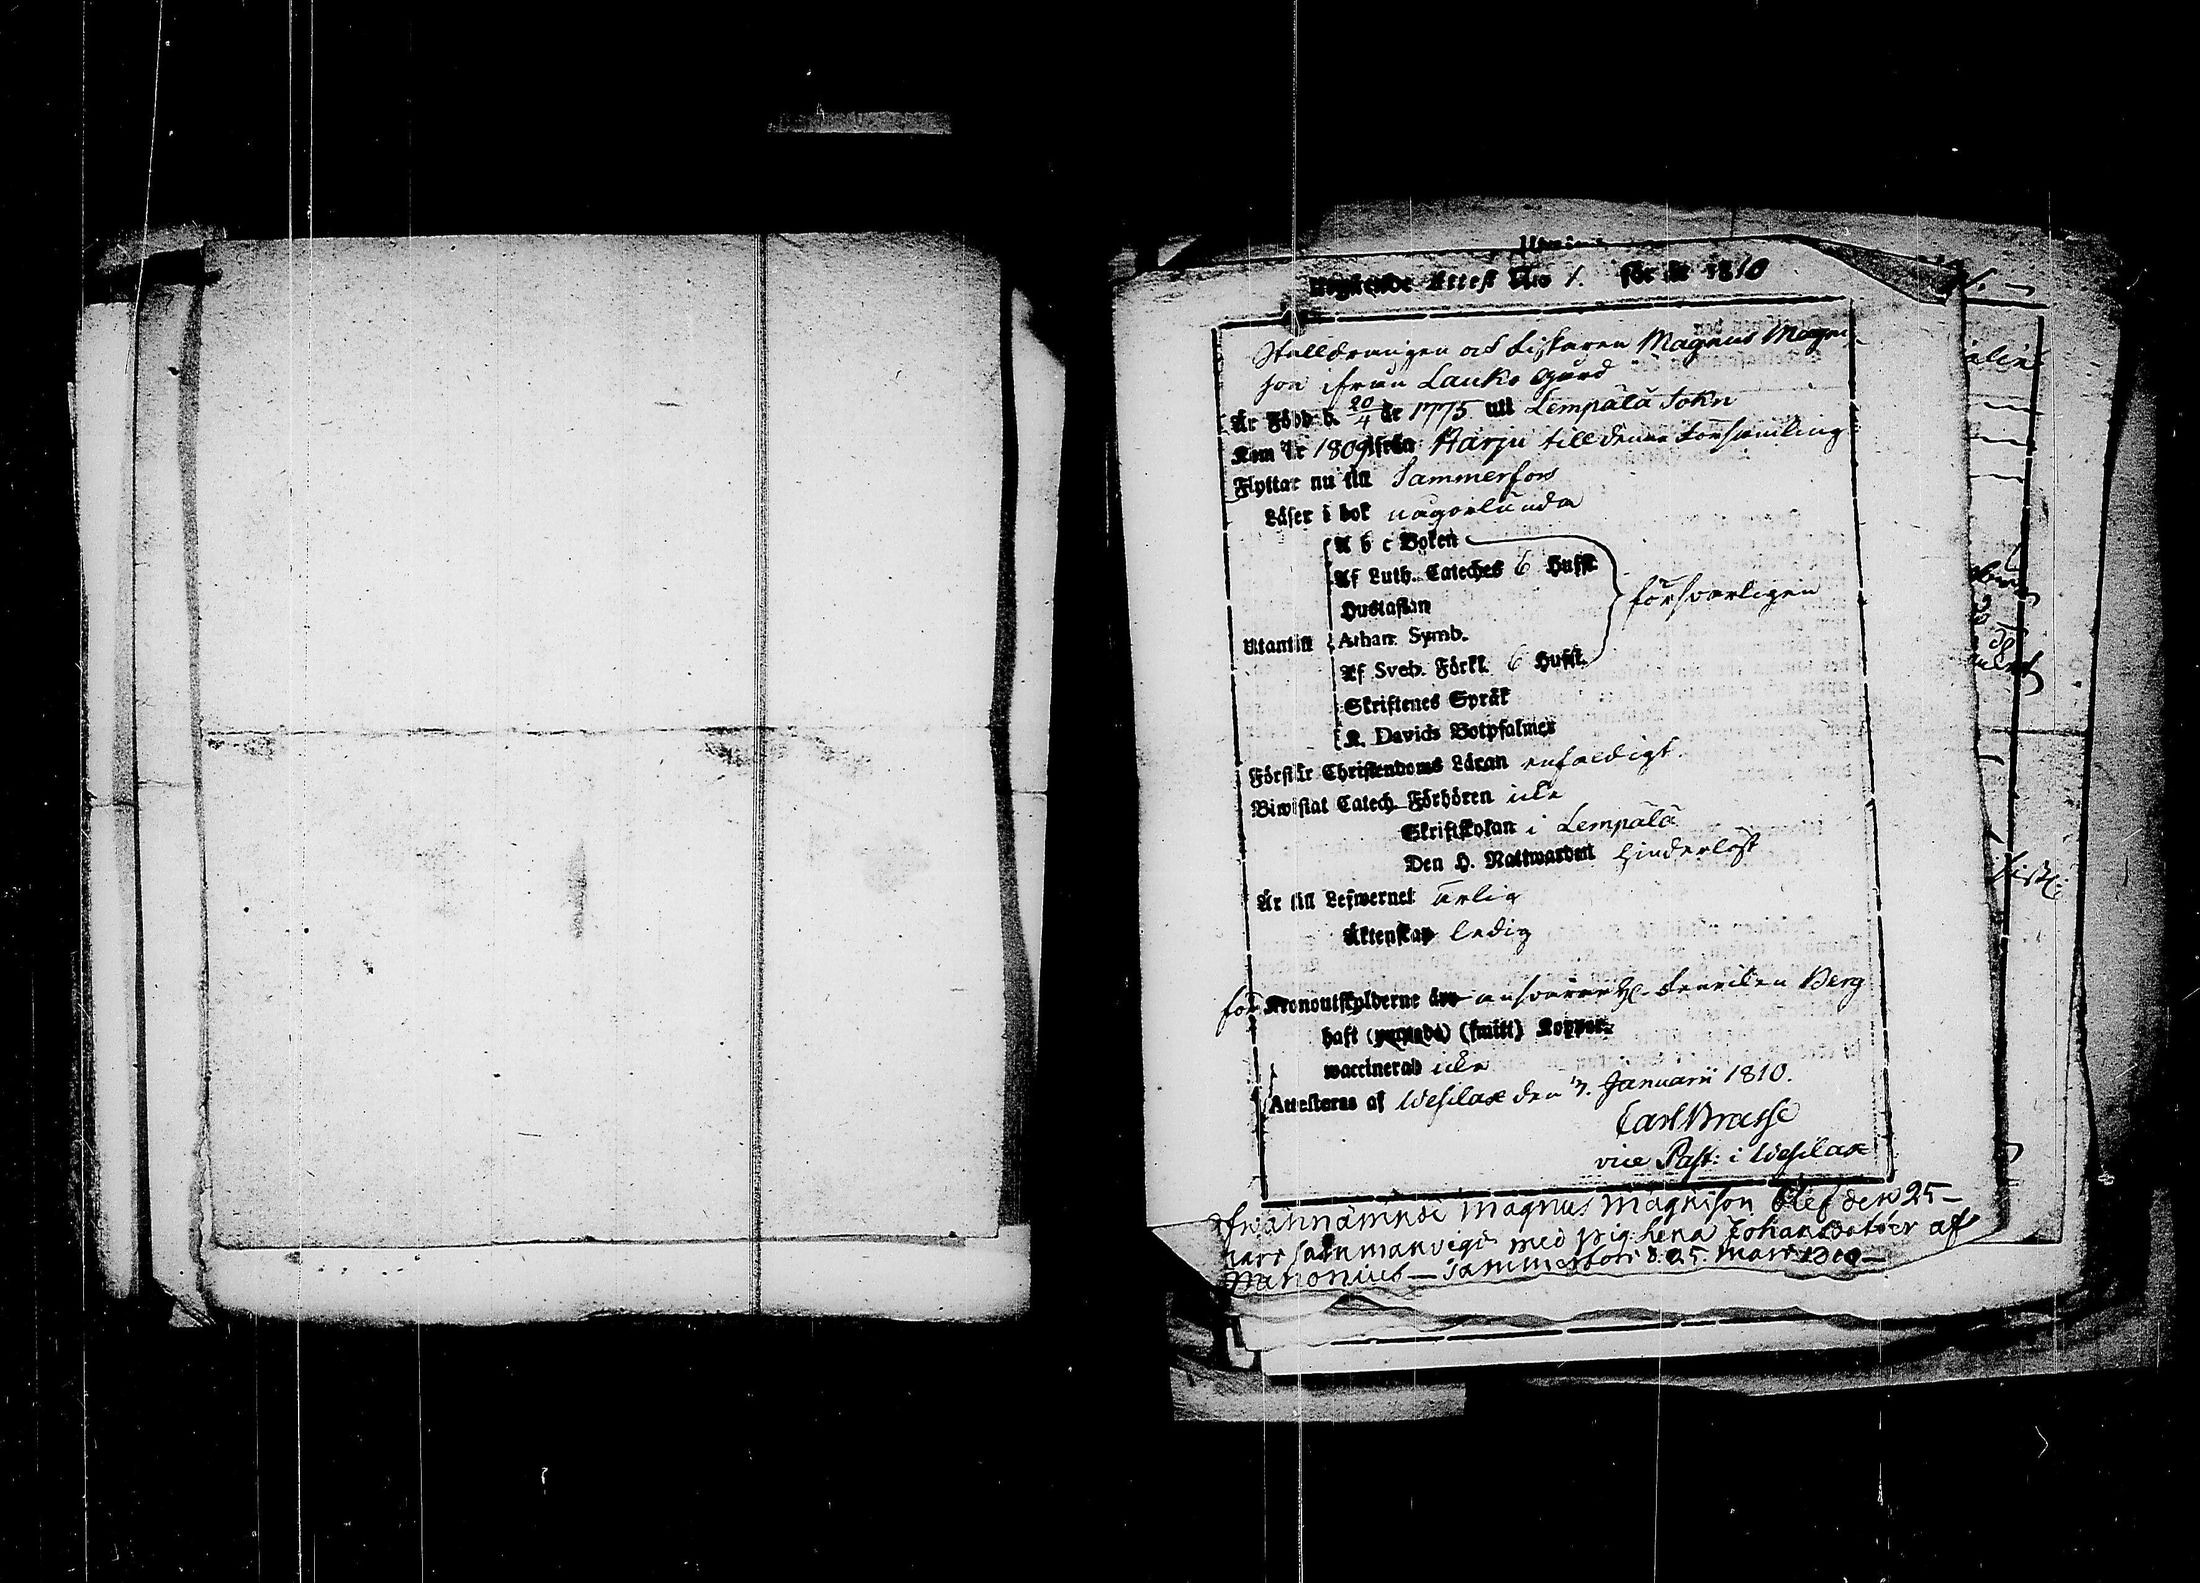 Utgående Attest N:o 1. för år 1810
Stalldrängen och Fiskaren Magnus Magni-
son ifrån Lauko Gård
Är Född d. 20/4 år 1775 uti Lempälä Sokn
Kom år 1809 ifrån Harju till denna Församling
Flyttar nu till Tammerfors
Läser i bok någorlunda
A b c Boken
Af Luth. Cateches 6 Hufst.
Hustaflan
försvarligen
Utantill
Athan. Symb.
Af Sveb. Förkl. 6 Hufst.
Skriftenes Språk
K. Davids Botpsalmer
Förstår Christendoms Läran enfaldigt.
Biwistat Catech. Förhören icke
Skriftskolan i Lempälä
Den H. Nattwarden hinderlöst
Är till Lefwernet ärlig
Äktenskap ledig
för Kronoutskylderne ansvarar H. Fenriken Berg
haft (smått) Koppor.
waccinerad icke
Attesteras af Wesilax den 7. Januarii 1810.
Carl Brasse
vice Past: i Wesilax
Ofwannämnde Magnus Magnison blef den 25
mars samman vigd med pig. Lena Johansdotter af
Tammerfors d. 25. Mars 1810